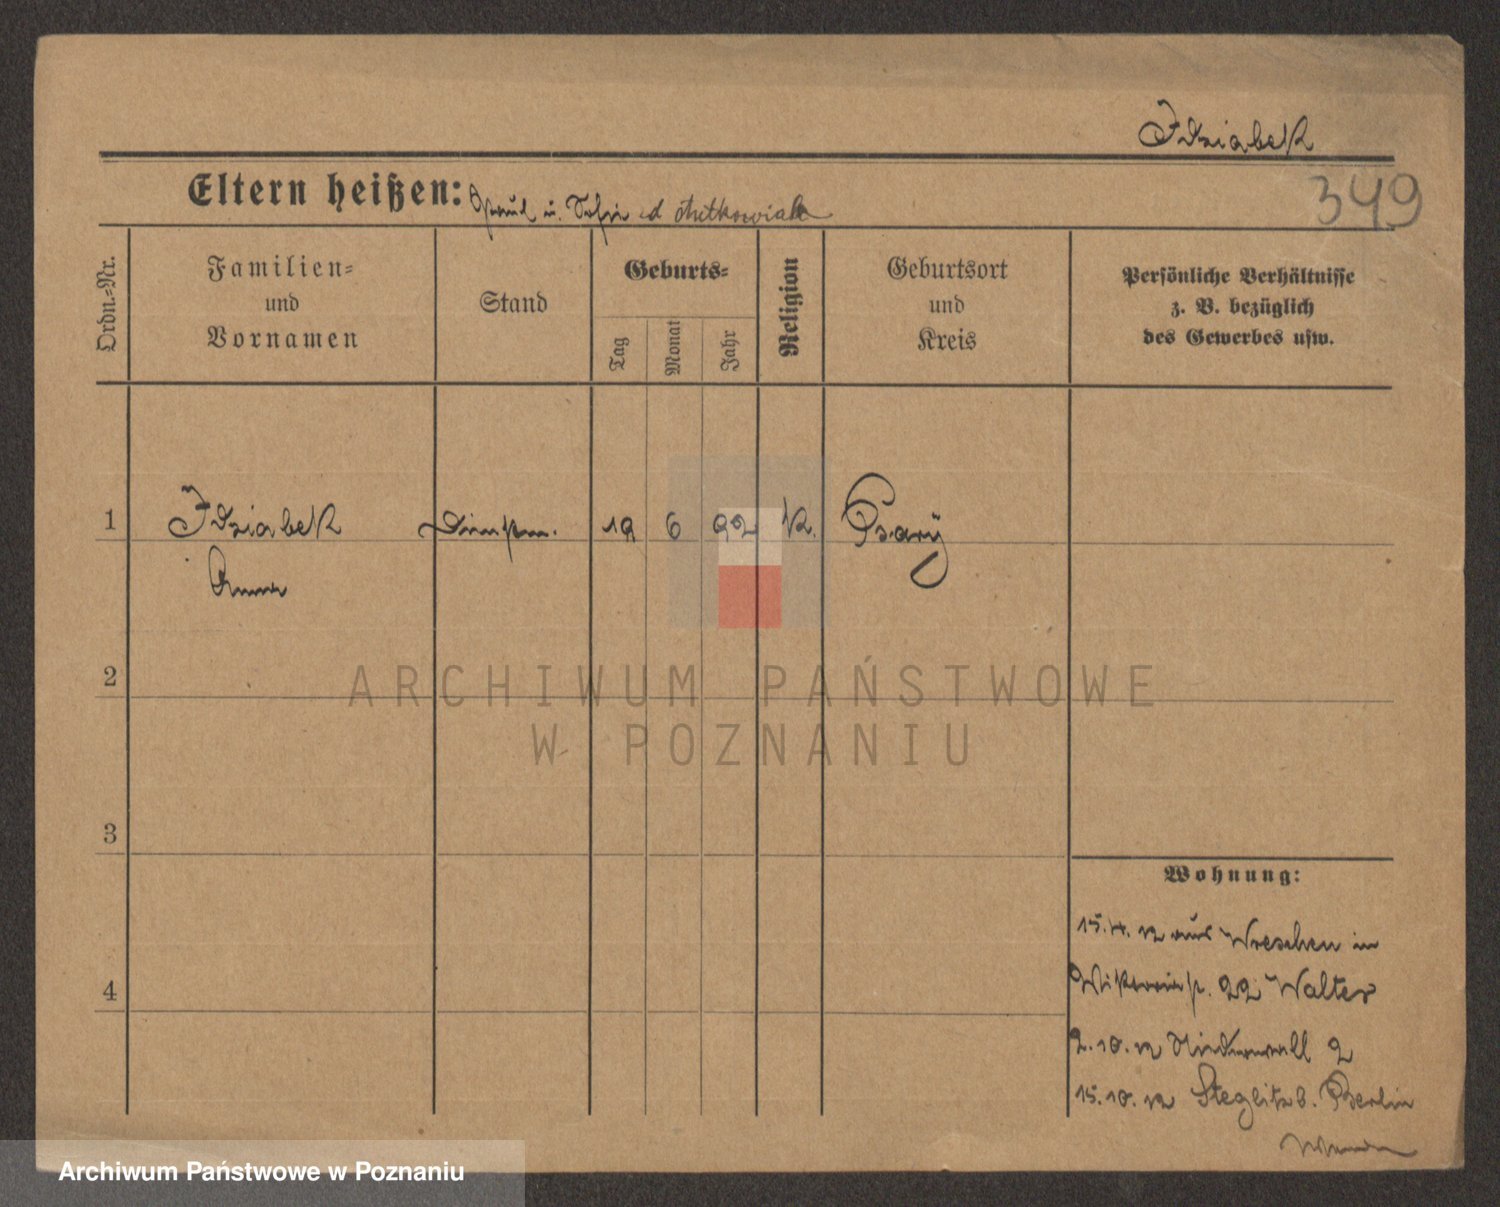 Idziabek
Eltern heißen: Paul u. Sofie
349
Ordn.-Nr.
Familien-
und
Vornamen
Stand
Geburts-
Tag
Monat
Jahr
Religion
Geburtsort
und
Kreis
Persönliche Verhältnisse
z. B. bezüglich
des Gewerbes usw.
1 Idziabek Dienstm. 19 6 92 K. Psary
Anna
2
ARCHIWUM PAŃSTWOWE
W POZNANIU
3
Wohnung:
15.4.12 aus Wreschen in
Viktoriastr. 22 Walter
4
2.10.12 2
15.10.12 Steglitz b. Berlin
Archiwum Państwowe w Poznaniu